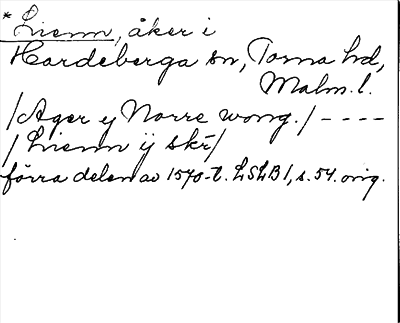 * Lienn, åker i
Hardeberga sn, Torna hd,
Malm. l.
/Ager y Norre wong./ - - - -
/Lienn ij skr/
förra delen av 1570-t. LSLB 1, s. 54. orig.